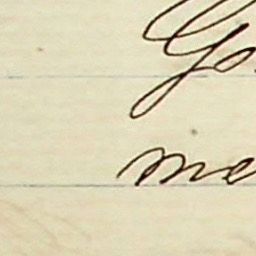 Go
me